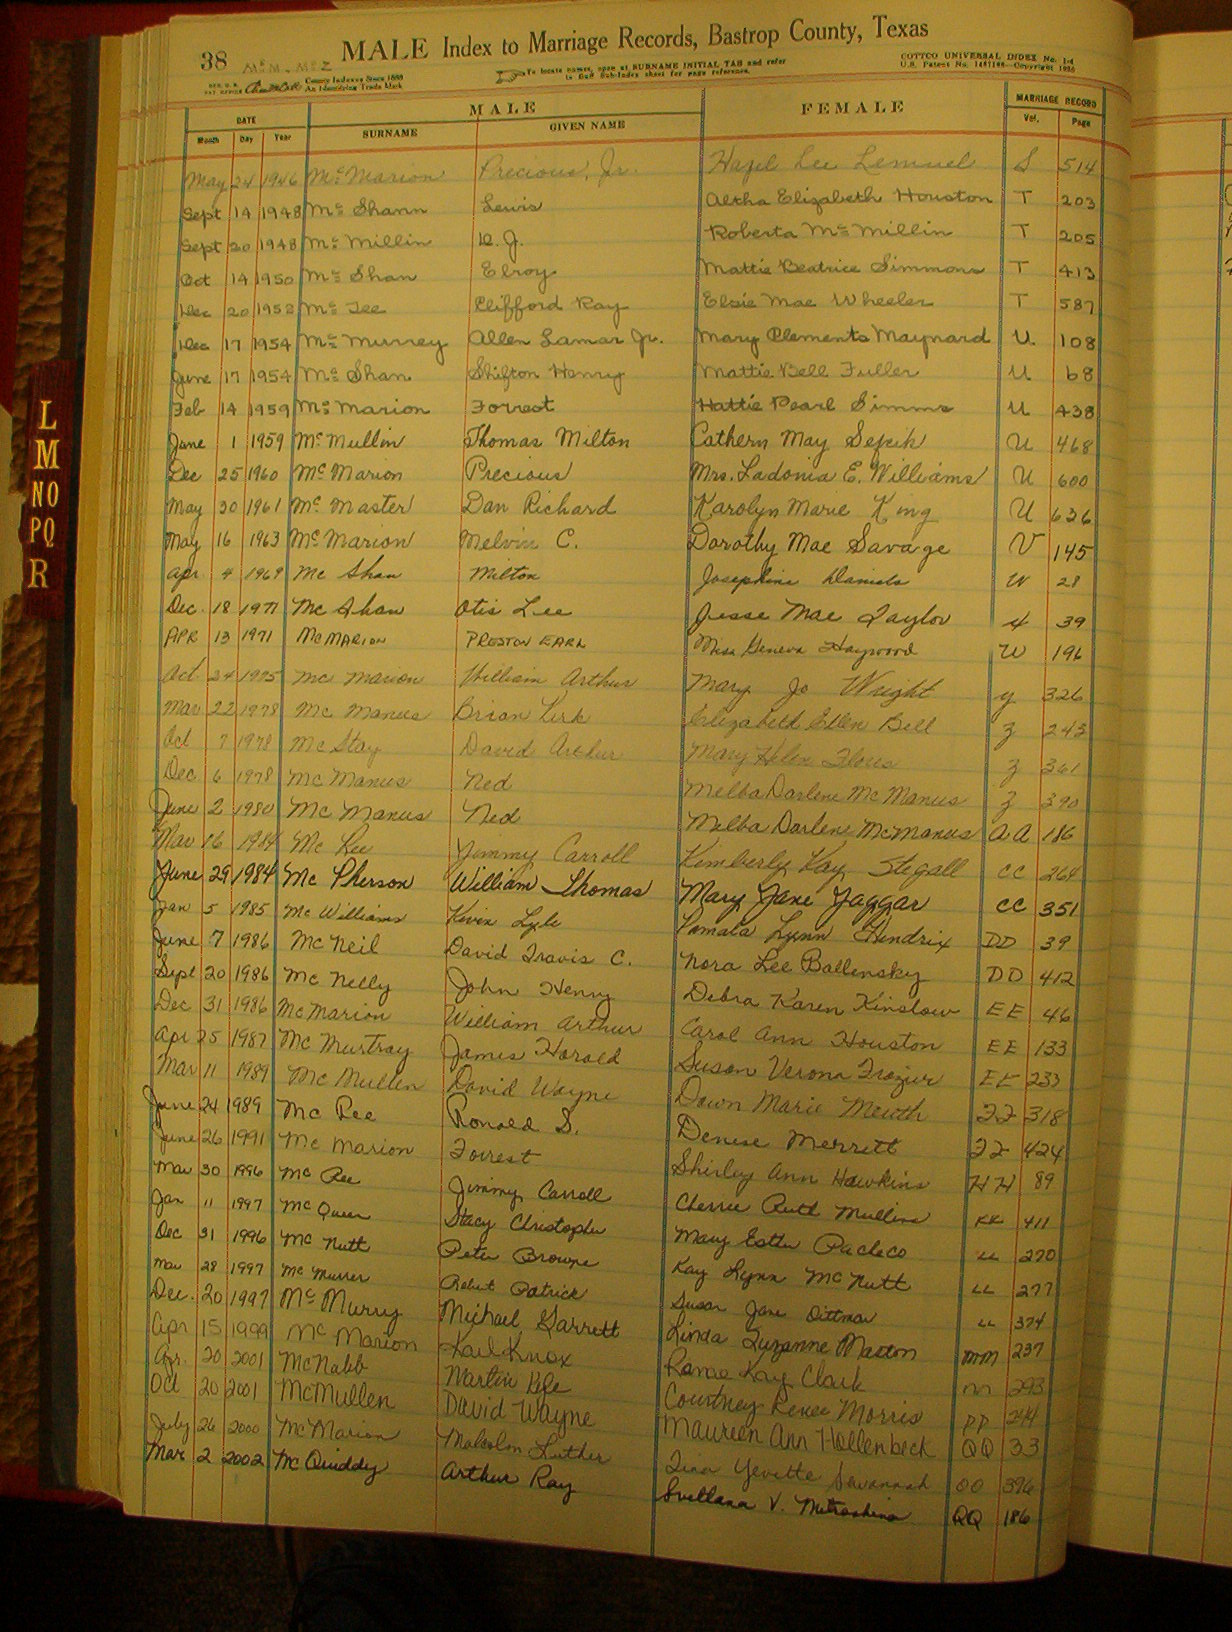 38 Mc M - Mc Z MALE Index to Marriage Records, Bastrop County, Texas
REG. U.S. PAT. OFFICE County Indexes Since 1888 An Identifying Trade Mark
To locate names, open at SURNAME INITIAL TAB and refer to Buff Sub-Index sheet for page reference.
COTTCO UNIVERSAL INDEX No. 1-4
DATE MALE FEMALE MARRIAGE RECORD
Month Day Year SURNAME GIVEN NAME Vol. Page
May 24 1946 McMarion Precious, Jr. Hazel Lee Lemuel S 514
Sept 14 1948 McShann Lewis Altha Elizabeth Houston T 203
Sept 20 1948 McMillin D. J. Roberta McMillin T 205
Oct 14 1950 McShan Elroy Mattie Beatrice Simmons T 413
Dec 20 1952 McTee Clifford Ray Elsie Mae Wheeler T 587
Dec 17 1954 McMurrey Allen Lamar Jr. Mary Clements Maynard U 108
June 17 1954 McShan Shifton Henry Mattie Bell Fuller U 68
Feb 14 1959 McMarion Forrest Hattie Pearl Simms U 438
June 1 1959 McMullin Thomas Milton Cathern May Sefcik U 468
Dec 25 1960 McMarion Precious Mrs. Ladonia E. Williams U 600
May 30 1961 McMaster Dan Richard Karolyn Marie King U 636
May 16 1963 McMarion Melvin C. Dorothy Mae Savage V 145
Apr 4 1969 McShan Milton Josephine Daniels W 28
Dec. 18 1971 McShan Otis Lee Jesse Mae Taylor 39
APR 13 1971 McMARION PRESTON EARL Miss Geneva Haywood W 196
Oct 24 1975 McMarion William Arthur Mary Jo Wright Y 326
Mar 22 1978 McManus Brian Kirk Elizabeth Ellen Bell Z 243
Oct 7 1978 McStay David Arthur Mary Helen Flores Z 361
Dec 6 1978 McManus Ned Melba Darlene McManus Z 390
June 2 1980 McManus Ned Melba Darlene McManus AA 186
Mar 16 1984 McRee Jimmy Carroll Kimberly Kay Stegall CC 264
June 29 1984 McPherson William Thomas Mary Jane Jaggar CC 351
Jan 5 1985 McWilliams Kevin Lyle Pamala Lynn Hendrix DD 39
June 7 1986 McNeil David Travis C. Nora Lee Ballensky DD 412
Sept 20 1986 McNelly John Henry Debra Karen Kinslow EE 46
Dec 31 1986 McMarion William Arthur Carol Ann Houston EE 133
Apr 25 1987 McMurtray James Harold Susan Verona Frazier EE 233
Mar 11 1989 McMullen David Wayne Dawn Marie FF 318
June 24 1989 McRee Ronald S. Denise Merrett FF 424
June 26 1991 McMarion Forrest Shirley Ann Hawkins HH 89
Mar 30 1996 McRee Jimmy Carroll Cherrie Ruth Mullins KK 411
Jan 11 1997 McQueen Stacy Christopher Mary Esther Pacheco LL 270
Dec 31 1996 McNutt Peter Browne Kay Lynn McNutt LL 277
Mar 28 1997 Robert Patrick Susan Jane Dittmar LL 374
Dec. 20 1997 McMurry Michael Garrett Linda Suzanne Maston mm 237
Apr 15 1999 McMarion Karl Knox Kay Clark 293
Apr. 20 2001 McNabb Martin Courtney Renee Morris PP 244
Oct 20 2001 McMullen David Wayne Maureen Ann Hollenbeck QQ 33
July 26 2000 McMarion Malcolm Luther Tina Yevette Savannah OO 396
Mar 2 2002 McQuiddy Arthur Ray Svetlana V. Mitroshina QQ 186
L
M
NO
PQ
R